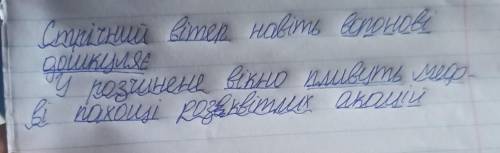 Стрічний вітер навіть вспонові
дошкуляє
У розчинене вікно пливуть медр-
ві пахощі розквітлих акацій